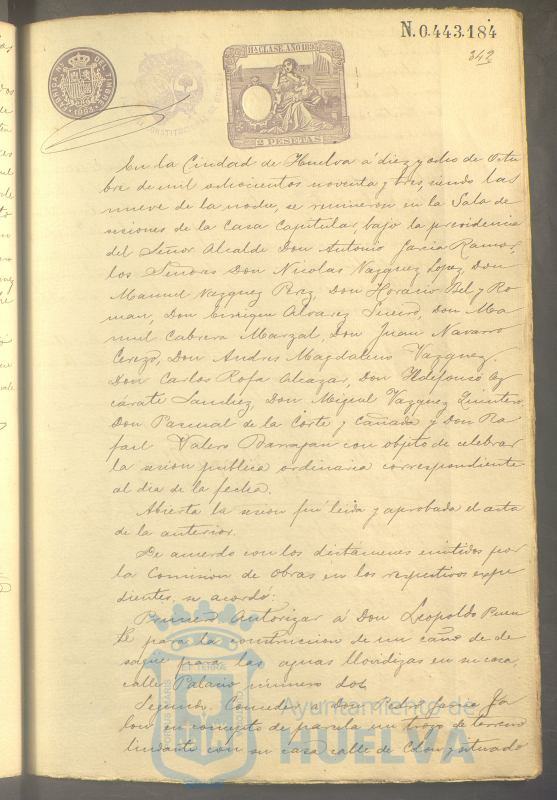 N.0.443.184
343
11ª CLASE AÑO 189
2 PESETAS
En la Ciudad de Huelva á diez y ocho de Octu
bre de mil ochocientos noventa y tres, siendo las
nueve de la noche, se reunieron en la Sala de
sesiones de la Casa Capitular, bajo la presidencia
del Señor Alcalde Don Antonio Garcia Ramos,
los Señores Don Nicolas Vazquez Lopez, Don
Manuel Vazquez Perez, Don Horacio Bel y Ro
man, Don Enrique Alvarez Don Ma
nuel Cabrera Marzal, Don Juan Navarro
Cerezo, Don Andres Magdaleno Vazquez,
Don Carlos Rofa Alcazar, Don Ildefonso Az
cárate Sanchez, Don Miguel Vazquez Quintero,
Don Pascual de la Corte y Cañada y Don Ra
fael Valero Barragan con objeto de celebrar
la sesion publica ordinaria correspondiente
al dia de la fecha.
Abierta la sesion fué leida y aprobada el acta
de la anterior.
De acuerdo con los dictámenes emitidos por
la Comision de obras en los respectivos expe
dientes, se acordó:
Primero Autorizar á Don Leopoldo Puen
te para la construccion de un caño de de
sagüe para las aguas llovidizas en su casa,
calle Palacio número dos
Segundo, Conceder á Don Pedro Garcia Ja
lon en concepto de parcela un trozo de terreno
lindante con su casa calle de Colon, situado
Ayuntamiento de
HUELVA